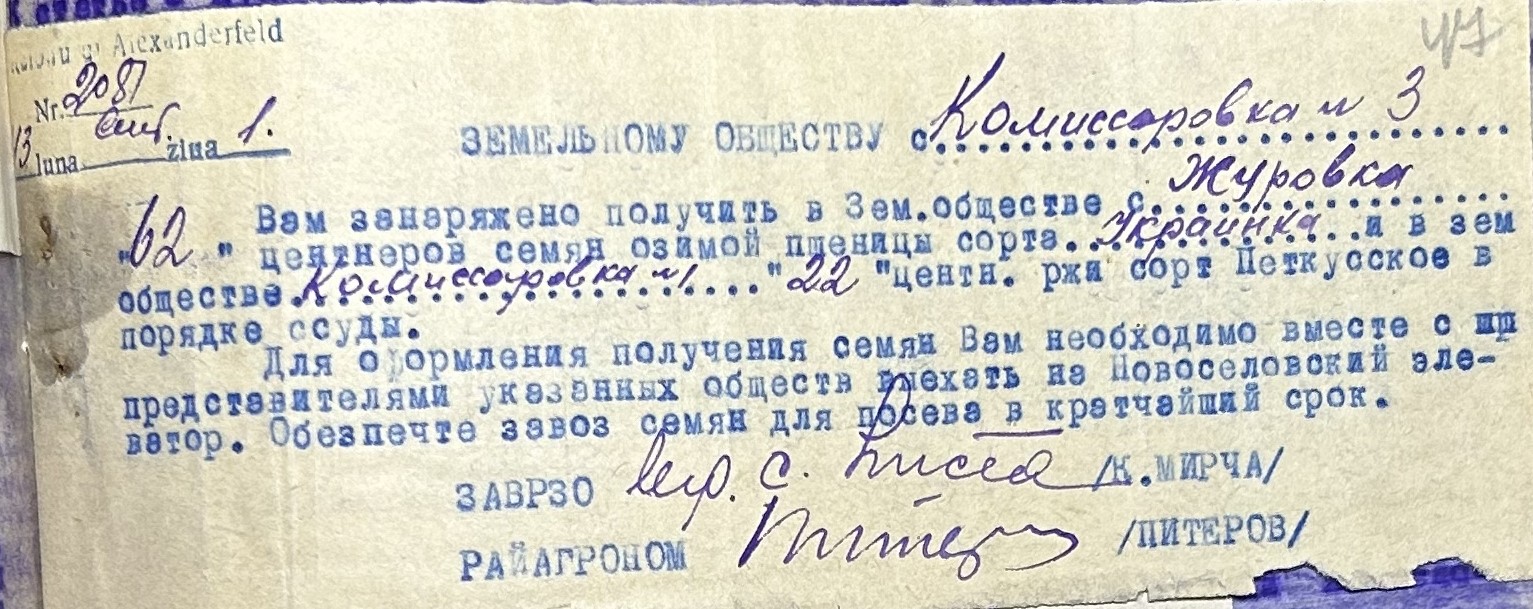 Alexanderfeld
47
Nr. 2087
13 luna ziua 1.
ЗЕМЕЛЬНОМУ ОБЩЕСТВУ с. Комиссаровка № 3
Вам занаряжено получить в Зем.обществе с. Журовка
"62" центнеров семян озимой пшеницы сорта. Украинка и в зем
обществе. Комиссаровка №1 "22" центн. ржи сорт Петкусское в
порядке ссуды.
Для оформления получения семян Вам необходимо вместе с пр
представителями указанных обществ выехать на Новоселовский эле-
ватор. Обезпечте завоз семян для посева в кратчайший срок.
ЗАВРЗО /К.МИРЧА/
РАЙАГРОНОМ /ПИТЕРОВ/